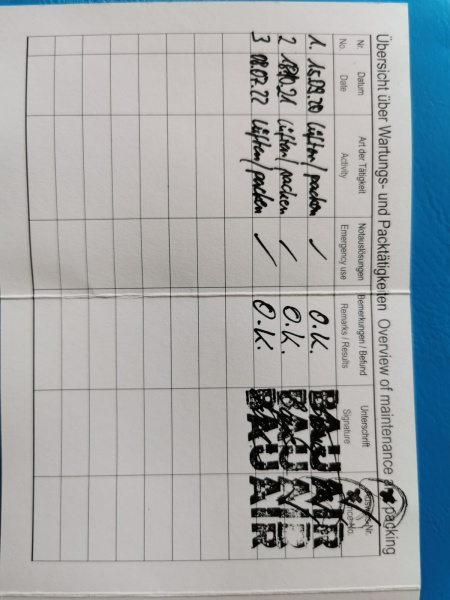 Übersicht über Wartungs- und Packtätigkeiten Overview of maintenance and packing
Nr. Datum Art der Tätigkeit Notauslösungen Bemerkungen / Befund Unterschrift Nr.
No. Date Activity Emergency use Remarks / Results Signature No.
1. 15.09.20 Lüften/packen / O.K. BAUAIR
2 18.10.21 Lüften/packen / O.K. BAUAIR
3 08.07.22 Lüften/packen / O.K. BAUAIR